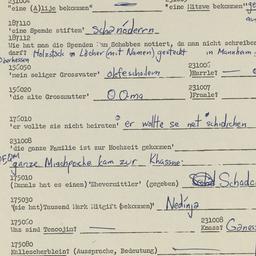 "eine (A)lije bekommen"
"eine Mitzwe bekommen"
187110
"eine Spende stiften"
187112
Wie hat man die Spenden am Schabbes notiert, da man nicht schreiben
darf? Holzstück m Löcher (mit Namen) gesteckt in Mannheim
150050
"mein seliger Grossvater"
231006
Harrle!
150020
"die alte Grossmutter" Oma
231007
Fraale!
175010
"er wollte sie nicht heiraten" er wollte se net
231008
"die ganze Familie ist zur Hochzeit gekommen"
ganze Mischpoche kam zur Khassne
175010
(Damals hat es einen) "Ehevermittler" (gegeben) Schadch
175030
"(sie hat) Tausend Mark Mitgift (bekommen)" Nedinje
175050
Was sind Tenoojim?
231008
175080
Kellescherblein? (Aussprache, Bedeutung)